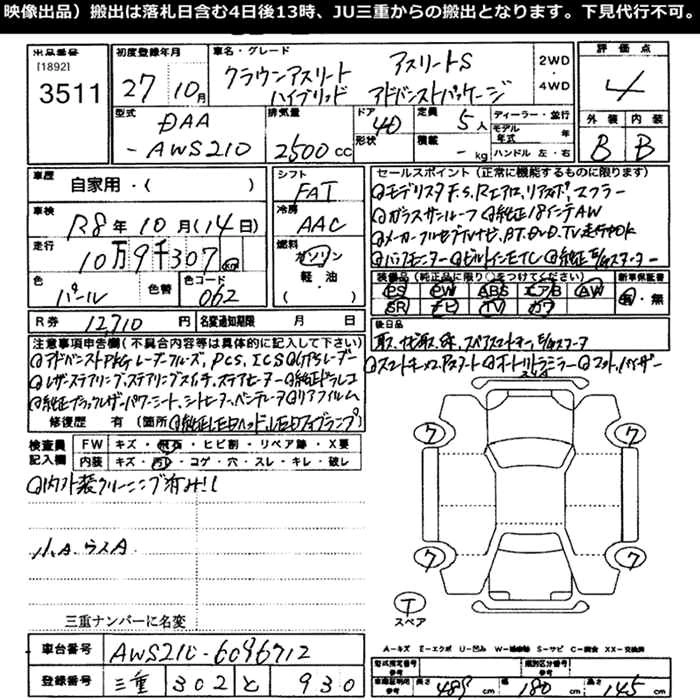 映像出品）搬出は落札日含む4日後13時、JU三重からの搬出となります。下見代行不可。
出品番号
[1892]
3511
初度登録年月
27年10月
車名・グレード
クラウンアスリート アスリートS
ハイブリッド アドバンストパッケージ
2WD・4WD
評価点
4
型式
DAA
-AWS210
排気量
2500cc
ドア 形状
4D
定員
5人
積載
- kg
ディーラー・並行
モデル年式 年
ハンドル 左・右
外装 内装
B B
車歴
自家用・(
シフト
FAT
車検
R8年10月(14日)
冷房
AAC
走行
10万9千307km
燃料
ガソリン
軽・油
( )
色
パール
色替
色コード
062
R券 12,710円
名変通知期限 月 日
セールスポイント（正常に機能するものに限ります）
◎モデリスタF.S.Rエアロ,リアスポ,マフラー
◎ガラスサンルーフ ◎純正18インチAW
◎メーカーフルセグTVナビ,BT,DVD,TV走行中OK
◎バックモニター ◎ビルトインETC
装備品（純正品に限り○をつけてください）
PS PW ABS エアB AW
SR ナビ TV カワ
新車保証書
有・無
後日品
注意事項申告欄（不具合内容等は具体的に記入して下さい）
◎アドバンストPKG レーダークルーズ,PCS,ICS
◎純正ブラックレザーパワーシート,シートヒーター,ベンチレータ ◎リアフィルム
修復歴 有（箇所 ◎純正LEDヘッド,LEDフォグランプ）
◎オートリトラミラー
検査員記入欄
FW キズ・飛石・ヒビ割・リペア跡・X要
内装 キズ・汚レ・コゲ・穴・スレ・キレ・破レ
◎内外装クリーニング済み!!
小A.ウスA
三重ナンバーに名変
車台番号 AWS210-6096712
登録番号 三重 302 と 930
ワ
ワ
ワ
ワ
T
スペア
A－キズ E－エクボ U－凹み W－補修跡 S－サビ C－腐食 XX－交換済
型式指定番号
類別区分番号
車検証明欄 参考
長さ 参考 489cm
幅 参考 180cm
高さ 参考 145cm